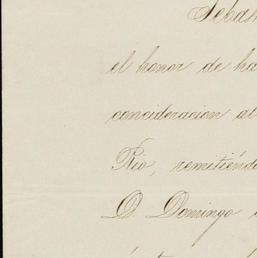 Sebas
el honor de ha
concideracion al
Rio, remitiéndo
D. Domingo